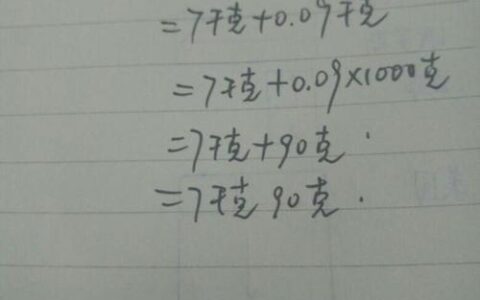 =7千克+0.09千克
=7千克+0.09×1000克
=7千克+90克.
=7千克90克.